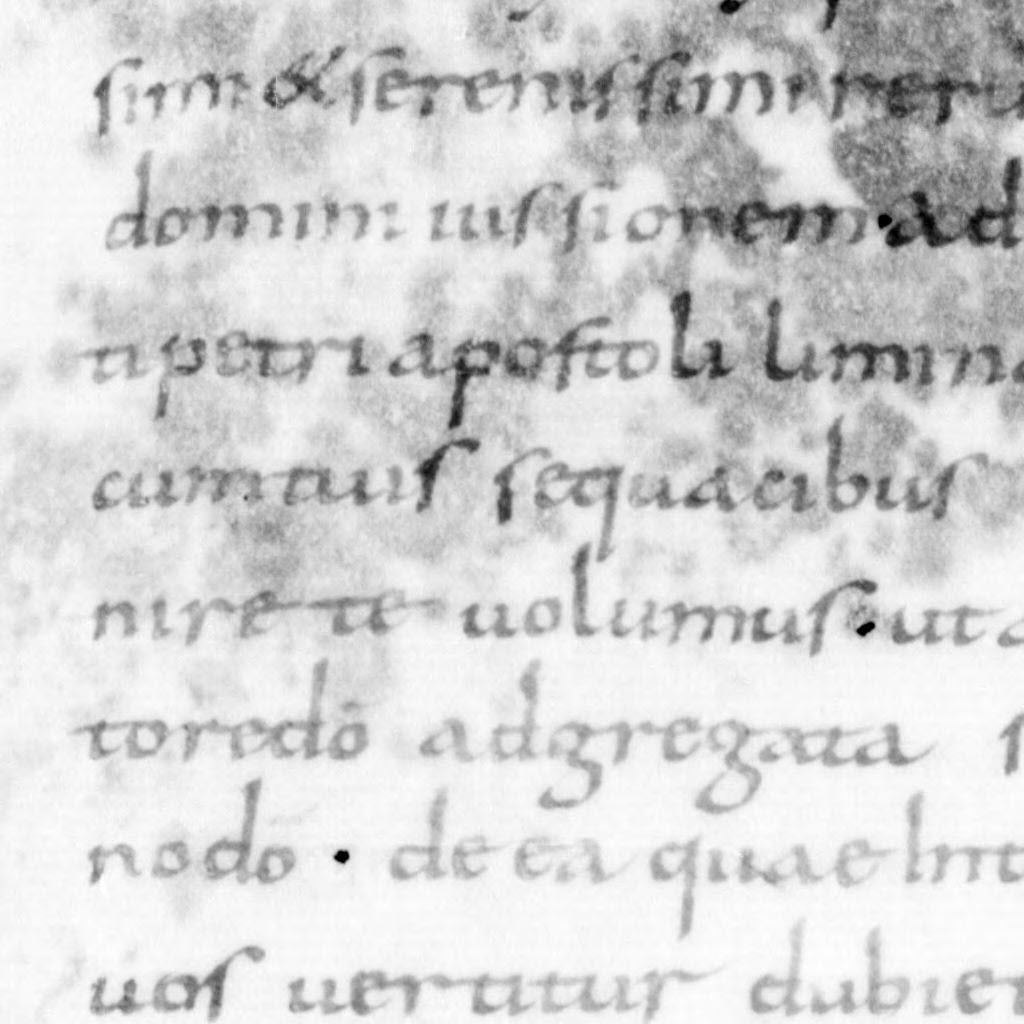 simi & serenissimi reru
domini iussionem · ad
ti petri apostoli limina
cum tuis sequacibus
nire te volumus · ut a
toredō adgregata s
nodō · de ea quae Int
uos uertitur dubiet